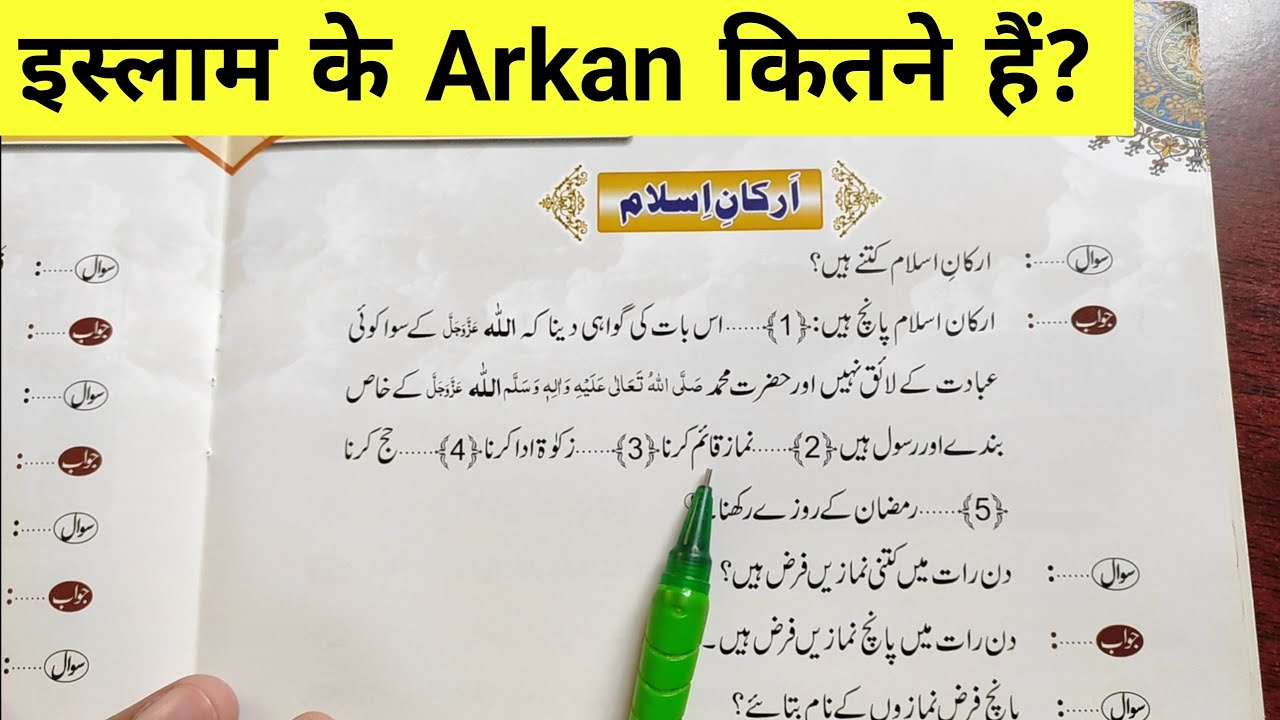 इस्लाम के Arkan कितने हैं?
اَرکانِ اِسلام
سوال ......: ارکانِ اسلام کتنے ہیں؟
جواب ......: ارکان اسلام پانچ ہیں: ﴿1﴾......اس بات کی گواہی دینا کہ اللہ عَزَّوَجَلَّ کے سوا کوئی
عبادت کے لائق نہیں اور حضرت محمد صَلَّی اللہُ تَعَالٰی عَلَیْہِ وَاٰلِہٖ وَسَلَّم اللہ عَزَّوَجَلَّ کے خاص
بندے اور رسول ہیں ﴿2﴾......نماز قائم کرنا ﴿3﴾......زکوٰۃ ادا کرنا ﴿4﴾......حج کرنا
﴿5﴾......رمضان کے روزے رکھنا
سوال ......: دن رات میں کتنی نمازیں فرض ہیں؟
جواب ......: دن رات میں پانچ نمازیں فرض ہیں۔
سوال ......: پانچ فرض نمازوں کے نام بتائیے؟
سوال ......:
جواب ......:
سوال ......:
جواب ......:
سوال ......:
جواب ......:
سوال ......: